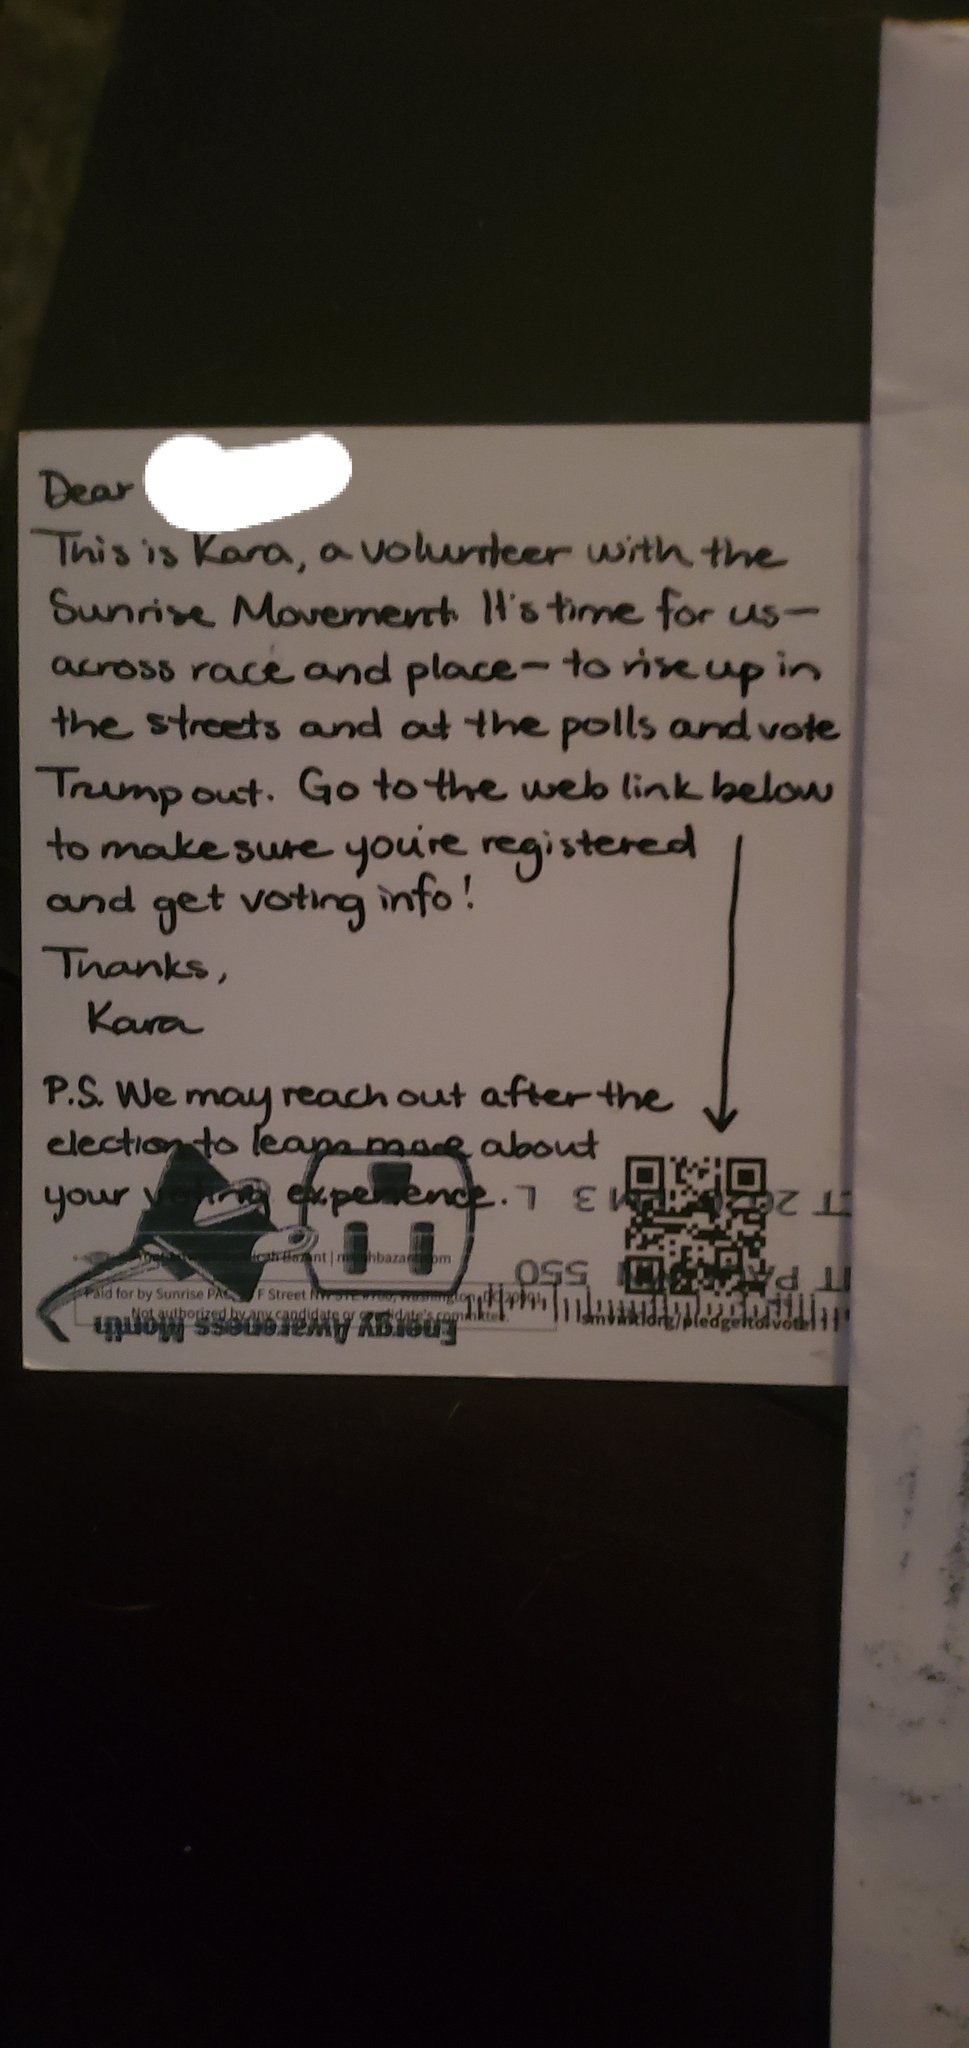 Dear
This is Kara, a volunteer with the
Sunrise Movement. It's time for us—
across race and place— to rise up in
the streets and at the polls and vote
Trump out. Go to the web link below
to make sure you're registered
and get voting info!
Thanks,
Kara
P.S. We may reach out after the
election to learn more about
your voting experience.
Bazant |
Paid for by Sunrise F Street NW Washington, DC
Not authorized by any candidate or candidate's committee.
Energy Awareness Month
2020 PM 3 L
PA 550
smvmt.org/pledgetovote